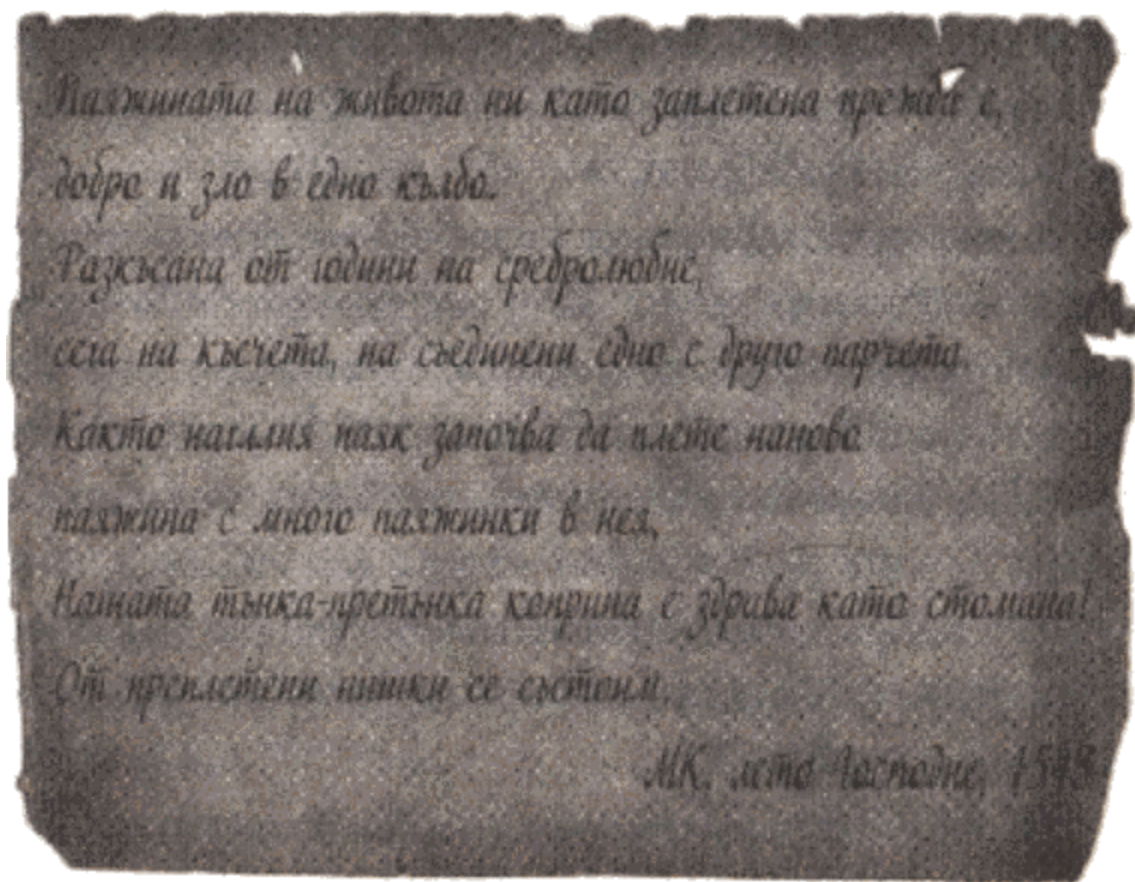 Паяжината на живота ни като заплетена прежда е,
добро и зло в едно кълбо.
Разкъсана от години на сребролюбие,
сега на късчета, на съединени едно с друго парчета.
Както наглия паяк започва да плете наново
паяжина с много паяжинки в нея,
Нашата тънка-претънка коприна е здрава като стомана!
От преплетени нишки се състоим.
МК, лето Господне,